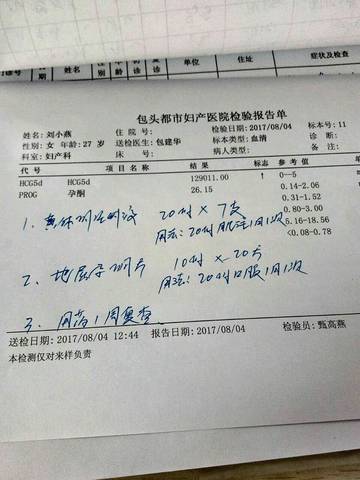 单位
住址
症状及检查
包头都市妇产医院检验报告单
姓名:刘小燕 住 院 号: 检验日期:2017/08/04 标本号:11
性别:女 年龄:27 岁 送检医生:包建华 标本类型:血清 诊断:
科室:妇产科 床 号: 病人类型: 备注:
代 号 项 目 名 称 结 果 标志 参 考 值
HCG5d HCG5d 129011.00 ↑ 0--5
PROG 孕酮 26.15 0.14-2.06
0.31-1.52
0.80-3.00
5.16-18.56
<0.08-0.78
1、黄体酮注射液 20mg × 7支
用法:20mg 肌注 1日1次
2、地屈孕酮片 10mg × 20片
用法:20mg 口服 1日1次
3、用药1周复查
送检日期:2017/08/04 12:44 报告日期:2017/08/04 检验员:甄高燕
本检测仪对来样负责